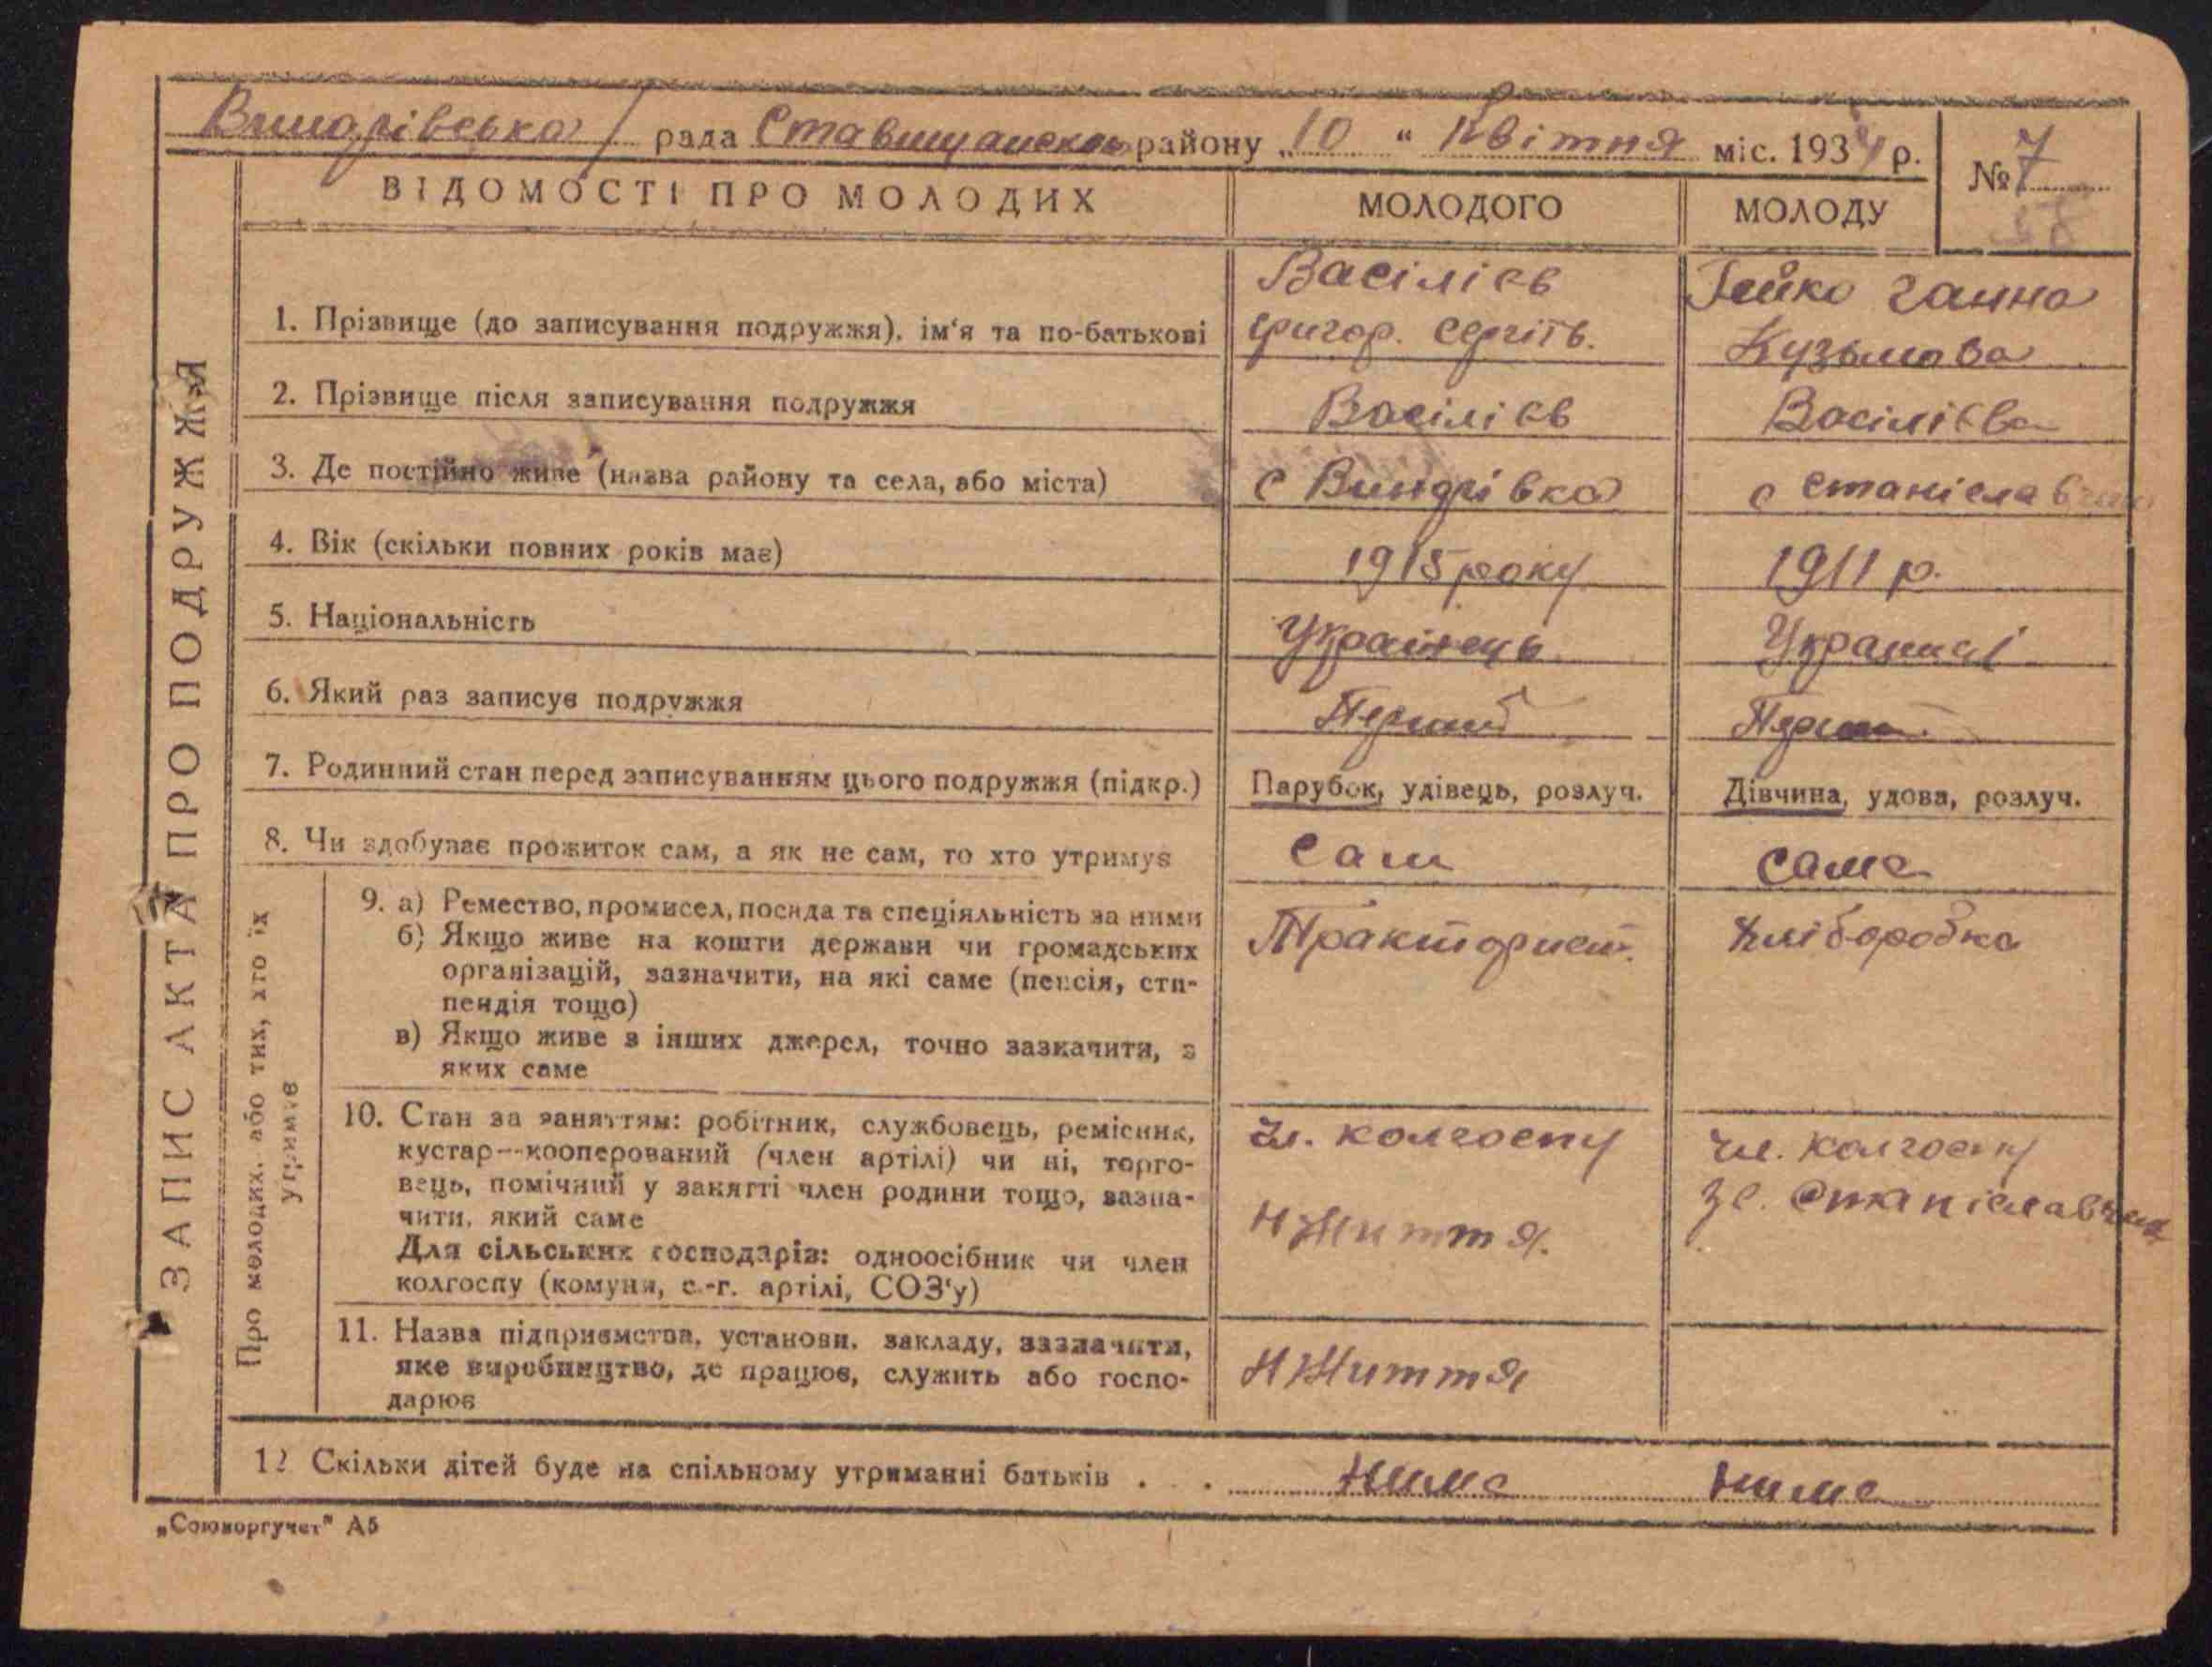 Винарівська рада Ставищанского району „10" Квітня міс. 1934 р.
№ 7
ВІДОМОСТІ ПРО МОЛОДИХ
МОЛОДОГО
МОЛОДУ
ЗАПИС АКТА ПРО ПОДРУЖЖЯ
1. Прізвище (до записування подружжя), ім'я та по-батькові
Васілієв
григор. Сергіїв.
Гейко Ганна
Кузьмова
2. Прізвище після записування подружжя
Васілієв
Васілієва
3. Де постійно живе (назва району та села, або міста)
с Винарівка
с Станіслав
4. Вік (скільки повних років має)
1915 року
1911 р.
5. Національність
Українець
6. Який раз записує подружжя
Перший
7. Родинний стан перед записуванням цього подружжя (підкр.)
Парубок, удівець, розлуч.
Дівчина, удова, розлуч.
8. Чи здобуває прожиток сам, а як не сам, то хто утримує
Сам
Сама
Про молодих, або тих, хто їх
утримує
9. а) Ремество, промисел, посада та спеціяльність за ними
б) Якщо живе на кошти держави чи громадських
організацій, зазначити, на які саме (пенсія, сти-
пендія тощо)
в) Якщо живе з інших джерел, точно зазначити, з
яких саме
Тракторист.
Хліборобка
10. Стан за заняттям: робітник, службовець, ремісник,
кустар--кооперований (член артілі) чи ні, торго-
вець, помічний у занятті член родини тощо, зазна-
чити, який саме
Для сільських господарів: одноосібник чи член
колгоспу (комуни, с.-г. артілі, СОЗ'у)
чл. колгоспу
Н Життя.
чл. колгоспу
11. Назва підприємства, установи, закладу, зазначити,
яке виробництво, де працює, служить або госпо-
дарює
Н Життя
12 Скільки дітей буде на спільному утриманні батьків . .
нима
нима
„Союзоргучет" А5